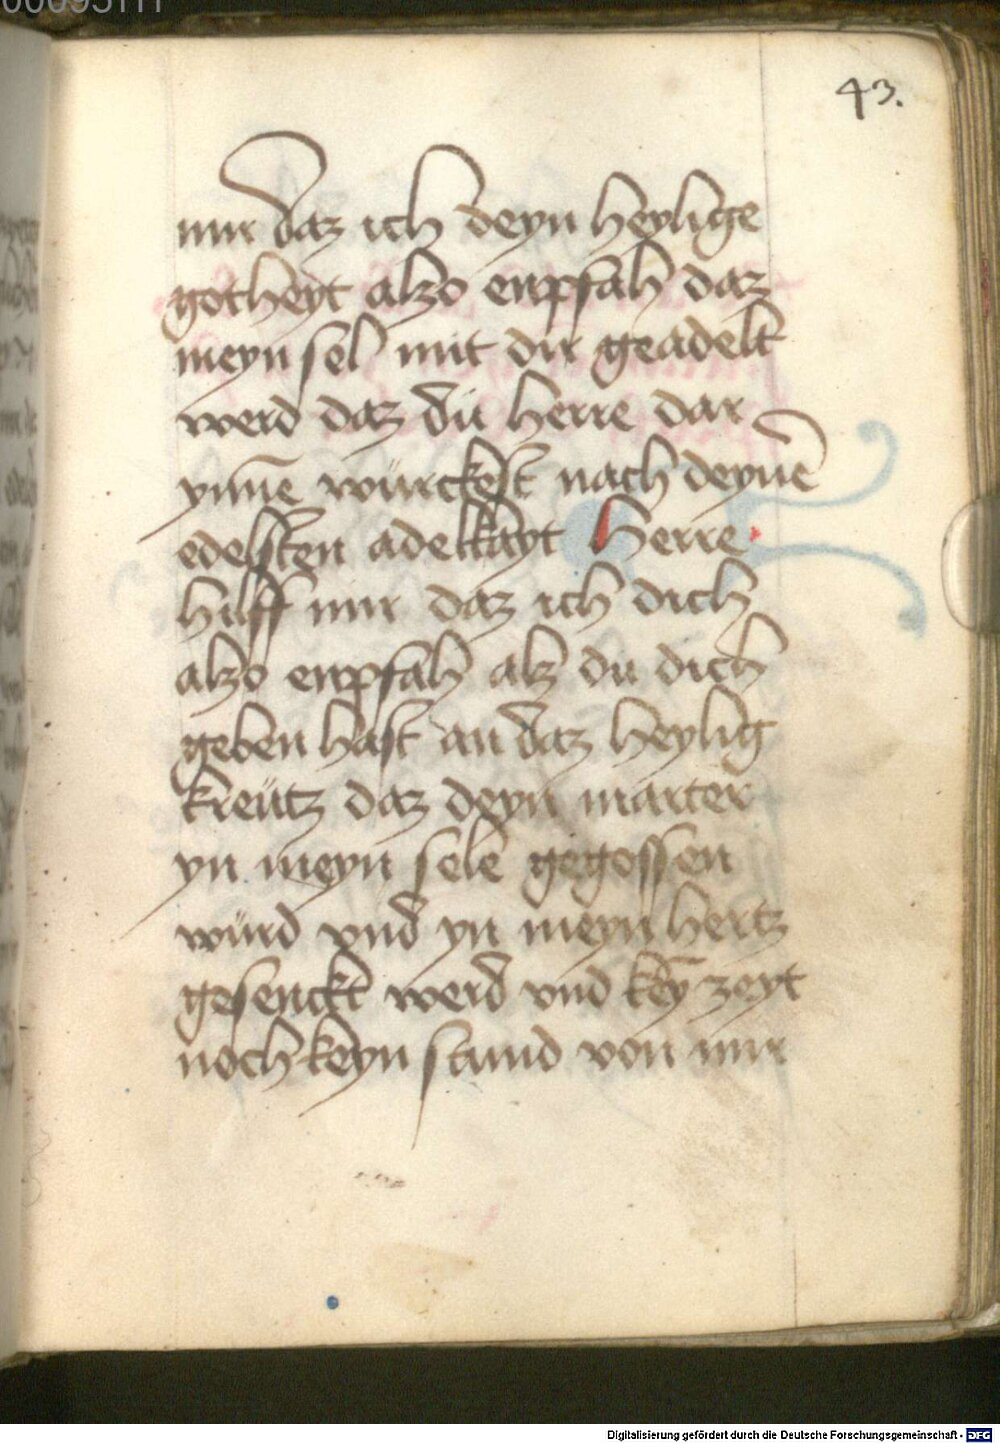 43.
mir daz ich deyn heylige
gotheyt alzo enpfah daz
meyn sel mit dir geadelt
werd daz dü herre dar
ynnē würckest nach deynē
edelsten adelkayt Herre
hilff mir daz ich dich
alzo enpfah alz du dich
geben hast an daz heylig
kreütz daz deyn marter
yn meyn sele gegossen
würd vnd yn meyn hertz
gesenckt werd vnd kēy zeyt
noch keyn stund von mir
Digitalisierung gefördert durch die Deutsche Forschungsgemeinschaft - DFG